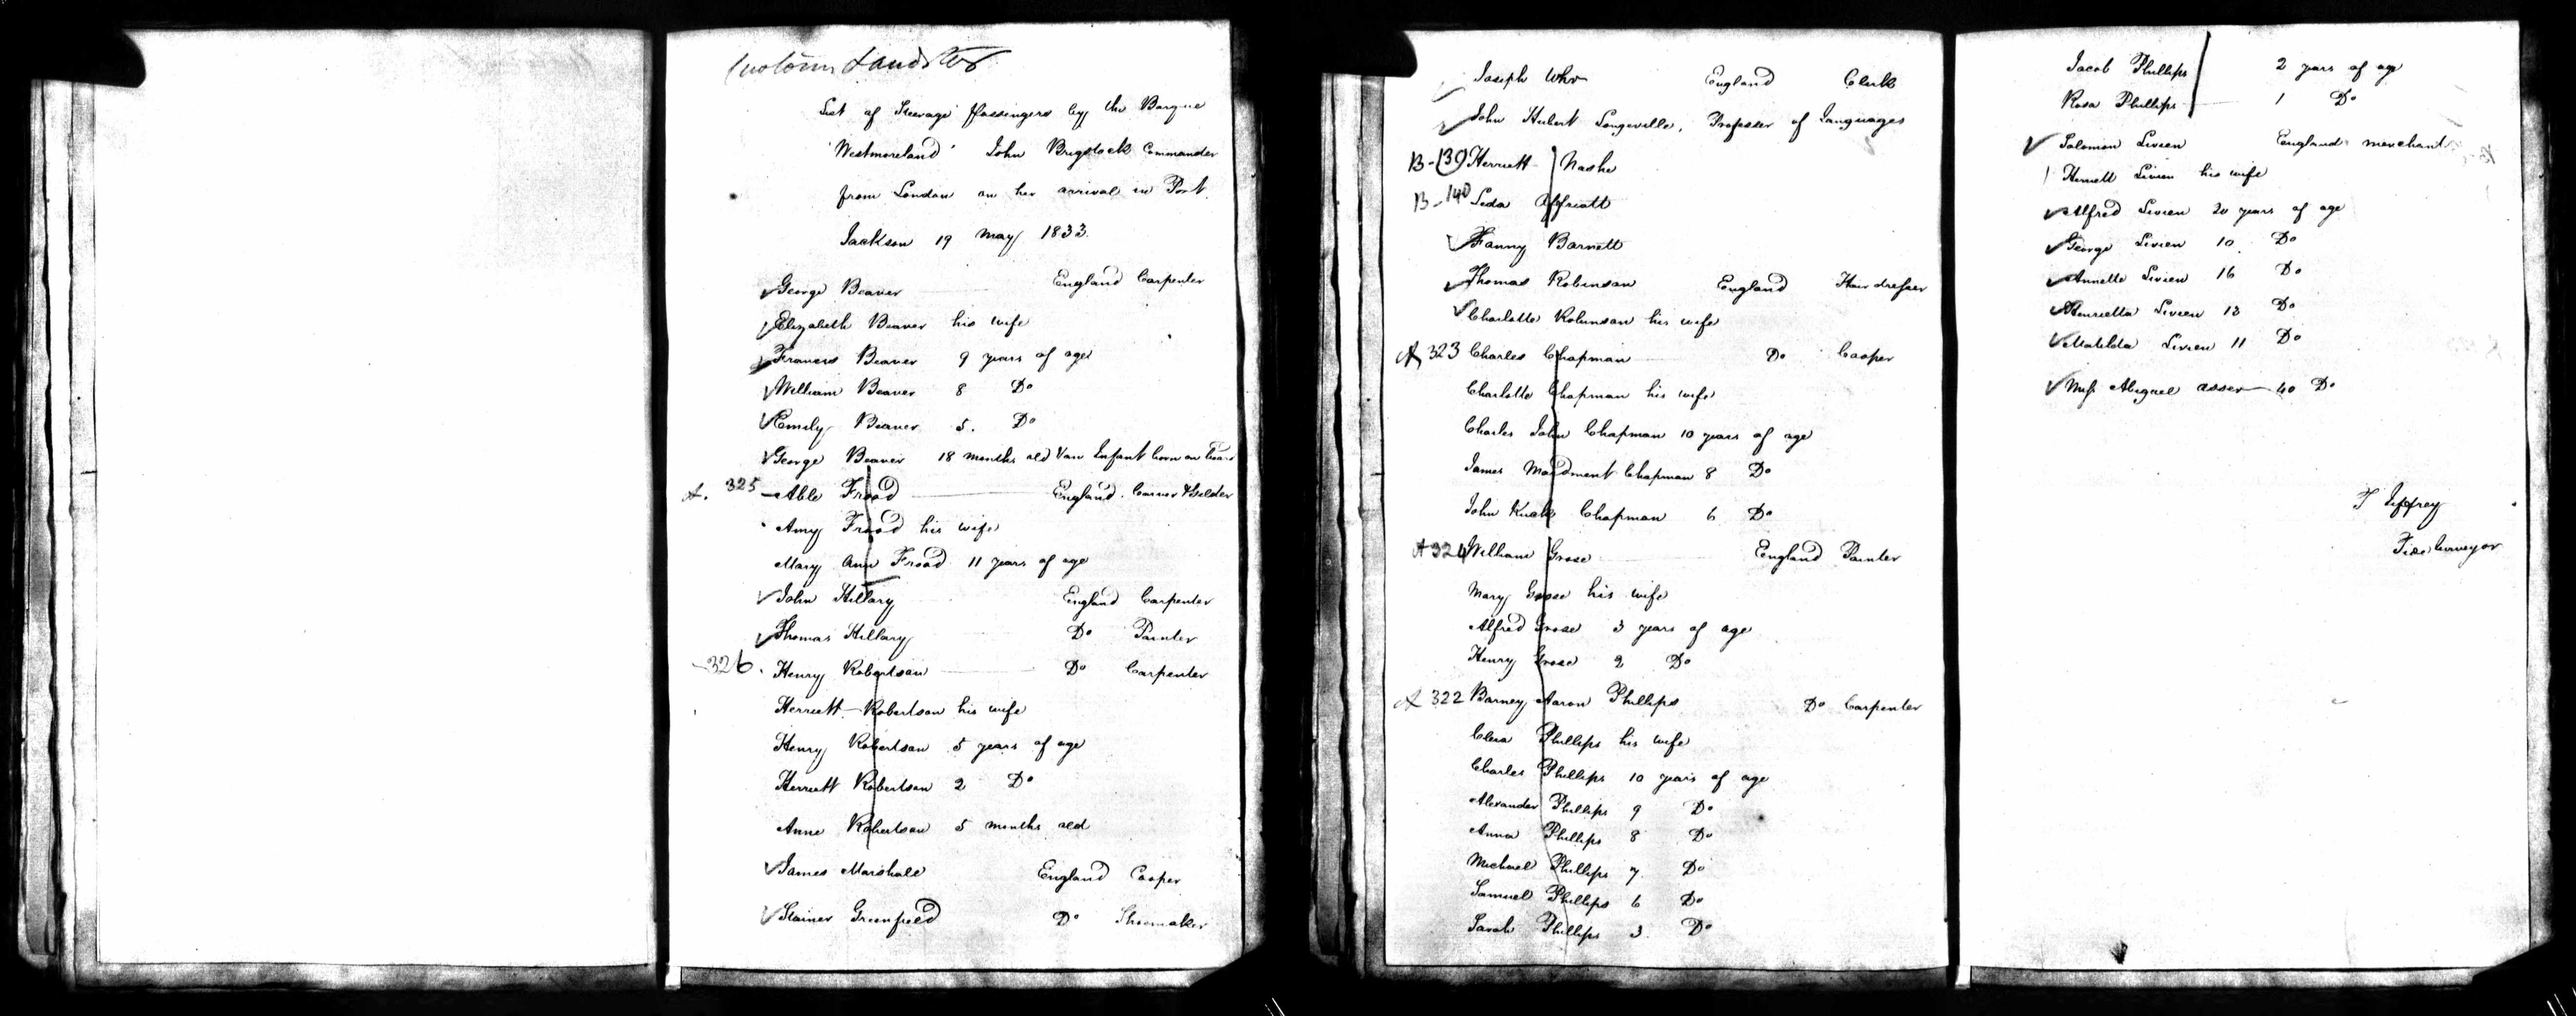 List of Steerage Passengers by the Barque
'Westmoreland' John Brigstock Commander
from London on her arrival in Port
Jackson 19 May 1833.
George Beaver England Carpenter
Elizabeth Beaver his wife
Francis Beaver 9 years of age
William Beaver 8 Do
Emily Beaver 5. Do
George Beaver 18 months old & an Infant born on board
A. 325 Able Frood England. Carver & Gilder
Amy Frood his wife
Mary Ann Frood 11 years of age
John Hillary England Carpenter
Thomas Hillary Do Painter
326. Henry Robertson Do Carpenter
Herriett Robertson his wife
Henry Robertson 5 years of age
Herriett Robertson 2 Do
Anne Robertson 5 months old
James Marshall England Cooper
Stainer Greenfield Do Shoemaker
Joseph England Clerk
John Hubert Longeville, Professor of Languages
B-139 Herriett Nashe
B-140 Leda
Fanny Barnett
Thomas Robinson England Hair dresser
Charlotte Robinson his wife
A 323 Charles Chapman Do Cooper
Charlotte Chapman his wife
Charles John Chapman 10 years of age
James Maidment Chapman 8 Do
John Chapman 6 Do
A 324 William Grose England Painter
Mary Grose his wife
Alfred Grose 3 years of age
Henry Grose 2 Do
A 322 Barney Aaron Phillips Do Carpenter
Clera Phillips his wife
Charles Phillips 10 years of age
Alexander Phillips 9 Do
Anna Phillips 8 Do
Michael Phillips 7. Do
Samuel Phillips 6 Do
Sarah Phillips 3. Do
Jacob Phillips 2 years of age
Rosa Phillips 1 Do
Solomon Levien England merchant
Herriett Levien his wife
Alfred Levien 20 years of age
George Levien 10 Do
Annette Levien 16 Do
Henrietta Levien 12 Do
Matilda Levien 11 Do
Miss Abigael asser 40 Do
T Jeffrey
Tide Surveyor